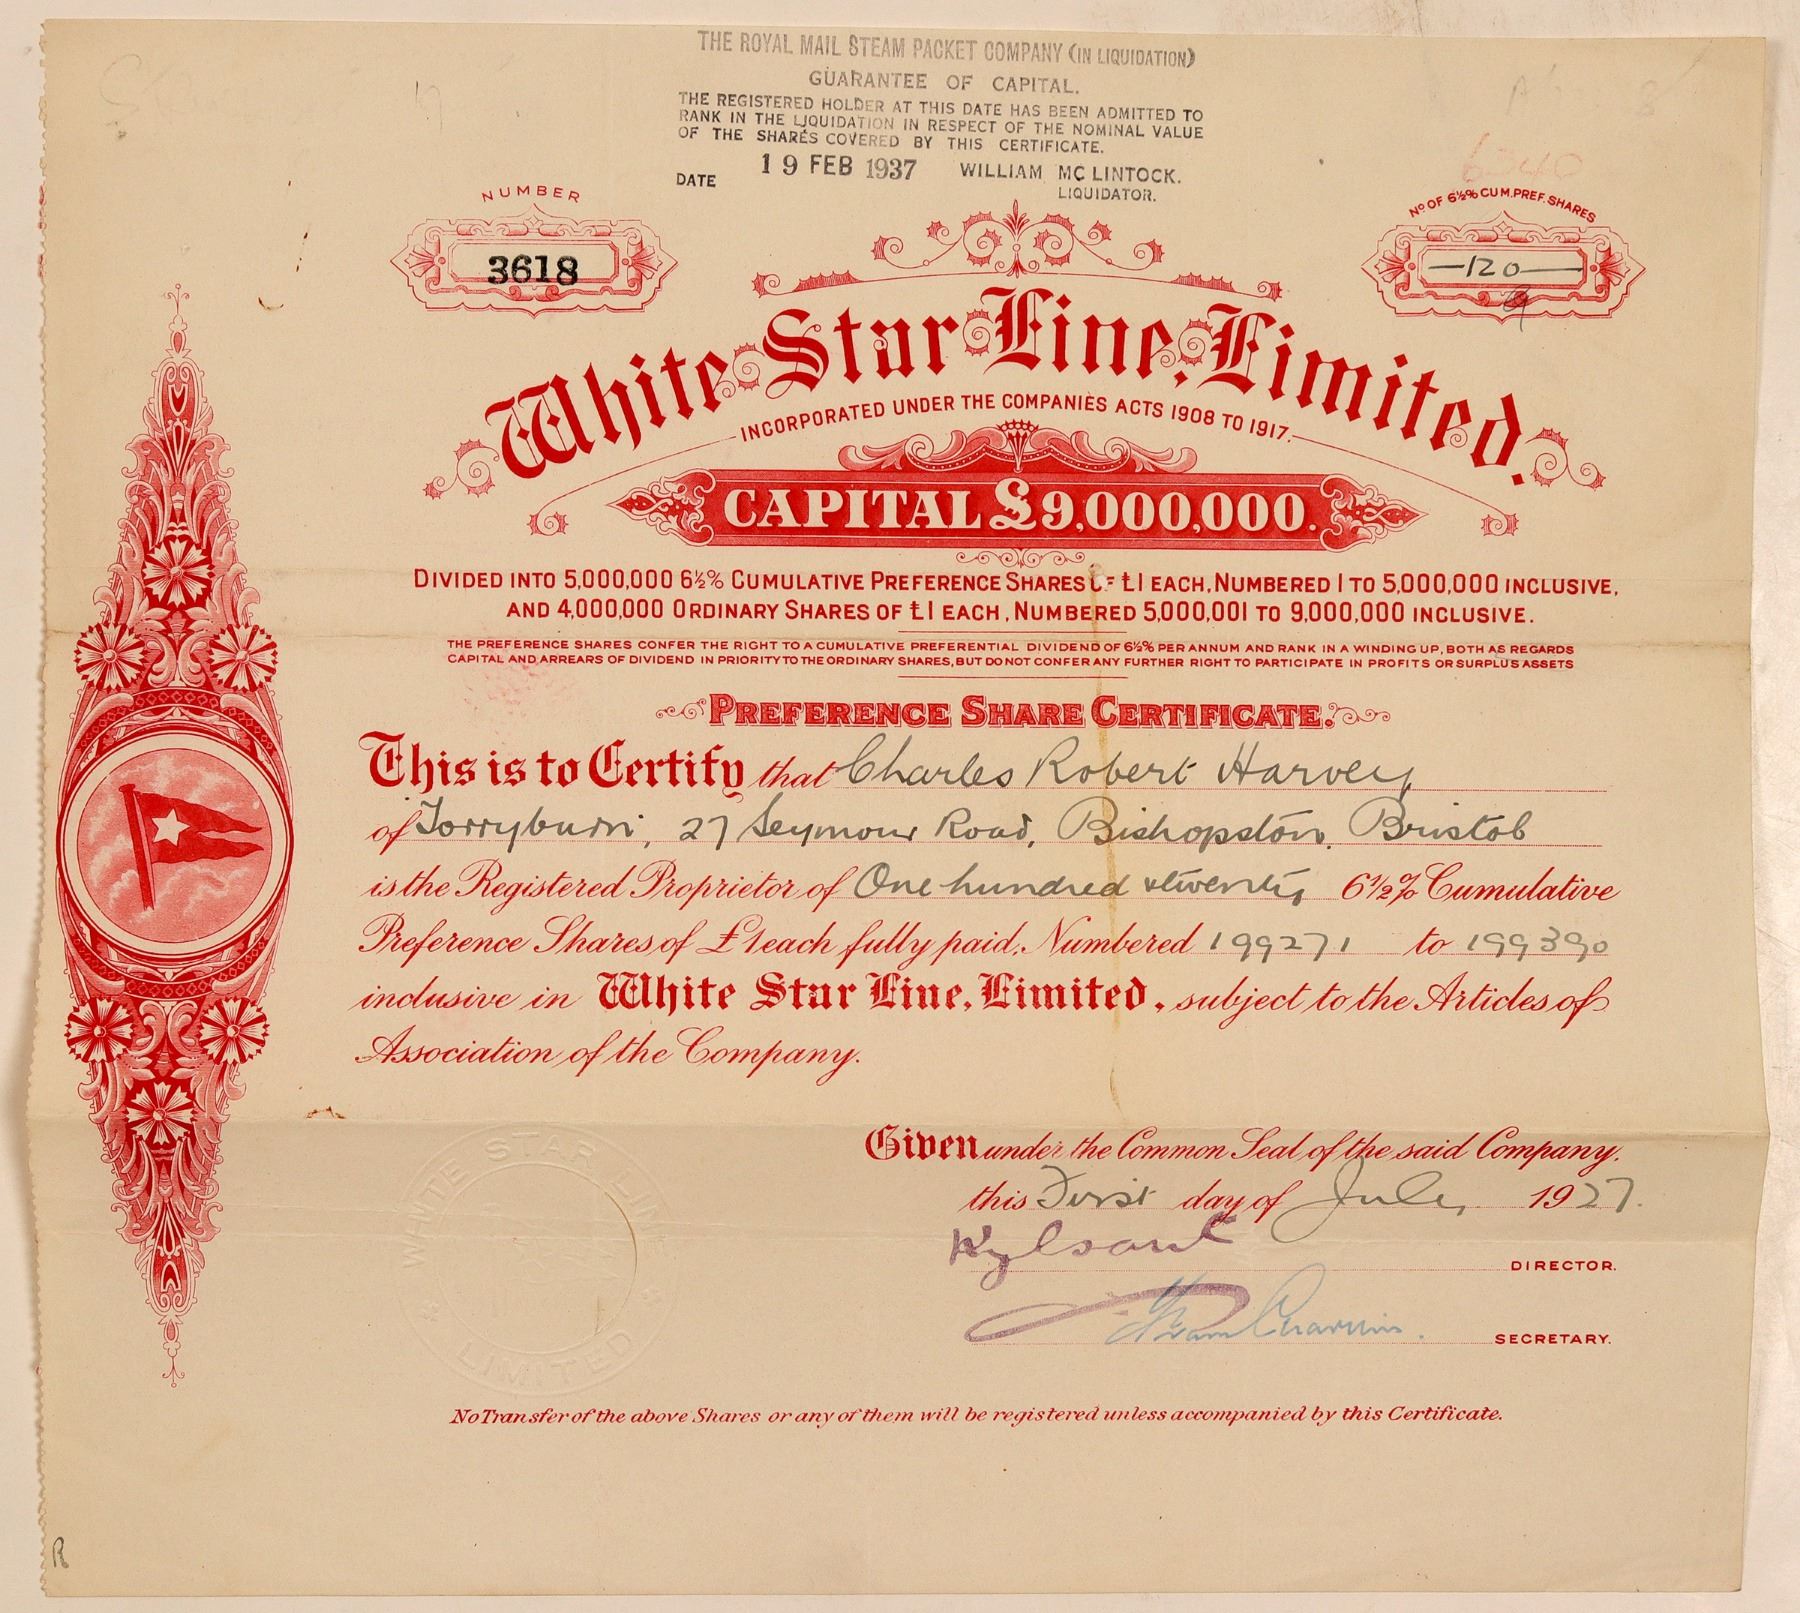 THE ROYAL MAIL STEAM PACKET COMPANY (IN LIQUIDATION)
GUARANTEE OF CAPITAL.
THE REGISTERED HOLDER AT THIS DATE HAS BEEN ADMITTED TO
RANK IN THE LIQUIDATION IN RESPECT OF THE NOMINAL VALUE
OF THE SHARES COVERED BY THIS CERTIFICATE.
DATE 19 FEB 1937 WILLIAM MC LINTOCK.
LIQUIDATOR.
6340
NUMBER
3618
No OF 6½% CUM. PREF. SHARES
—120—
White Star Line, Limited.
INCORPORATED UNDER THE COMPANIES ACTS 1908 TO 1917.
CAPITAL £9,000,000.
DIVIDED INTO 5,000,000 6½% CUMULATIVE PREFERENCE SHARES OF £1 EACH, NUMBERED 1 TO 5,000,000 INCLUSIVE,
AND 4,000,000 ORDINARY SHARES OF £1 EACH, NUMBERED 5,000,001 TO 9,000,000 INCLUSIVE.
THE PREFERENCE SHARES CONFER THE RIGHT TO A CUMULATIVE PREFERENTIAL DIVIDEND OF 6½% PER ANNUM AND RANK IN A WINDING UP, BOTH AS REGARDS
CAPITAL AND ARREARS OF DIVIDEND IN PRIORITY TO THE ORDINARY SHARES, BUT DO NOT CONFER ANY FURTHER RIGHT TO PARTICIPATE IN PROFITS OR SURPLUS ASSETS
PREFERENCE SHARE CERTIFICATE.
This is to Certify that Charles Robert Harvey
of Torryburn, 27 Seymour Road, Bishopston, Bristol
is the Registered Proprietor of One hundred & twenty 6½% Cumulative
Preference Shares of £1 each fully paid. Numbered 199271 to 199390
inclusive in White Star Line, Limited, subject to the Articles of
Association of the Company.
Given under the Common Seal of the said Company.
this First day of July 1927.
Kylsant DIRECTOR.
SECRETARY.
WHITE STAR LINE
LIMITED
No Transfer of the above Shares or any of them will be registered unless accompanied by this Certificate.
R